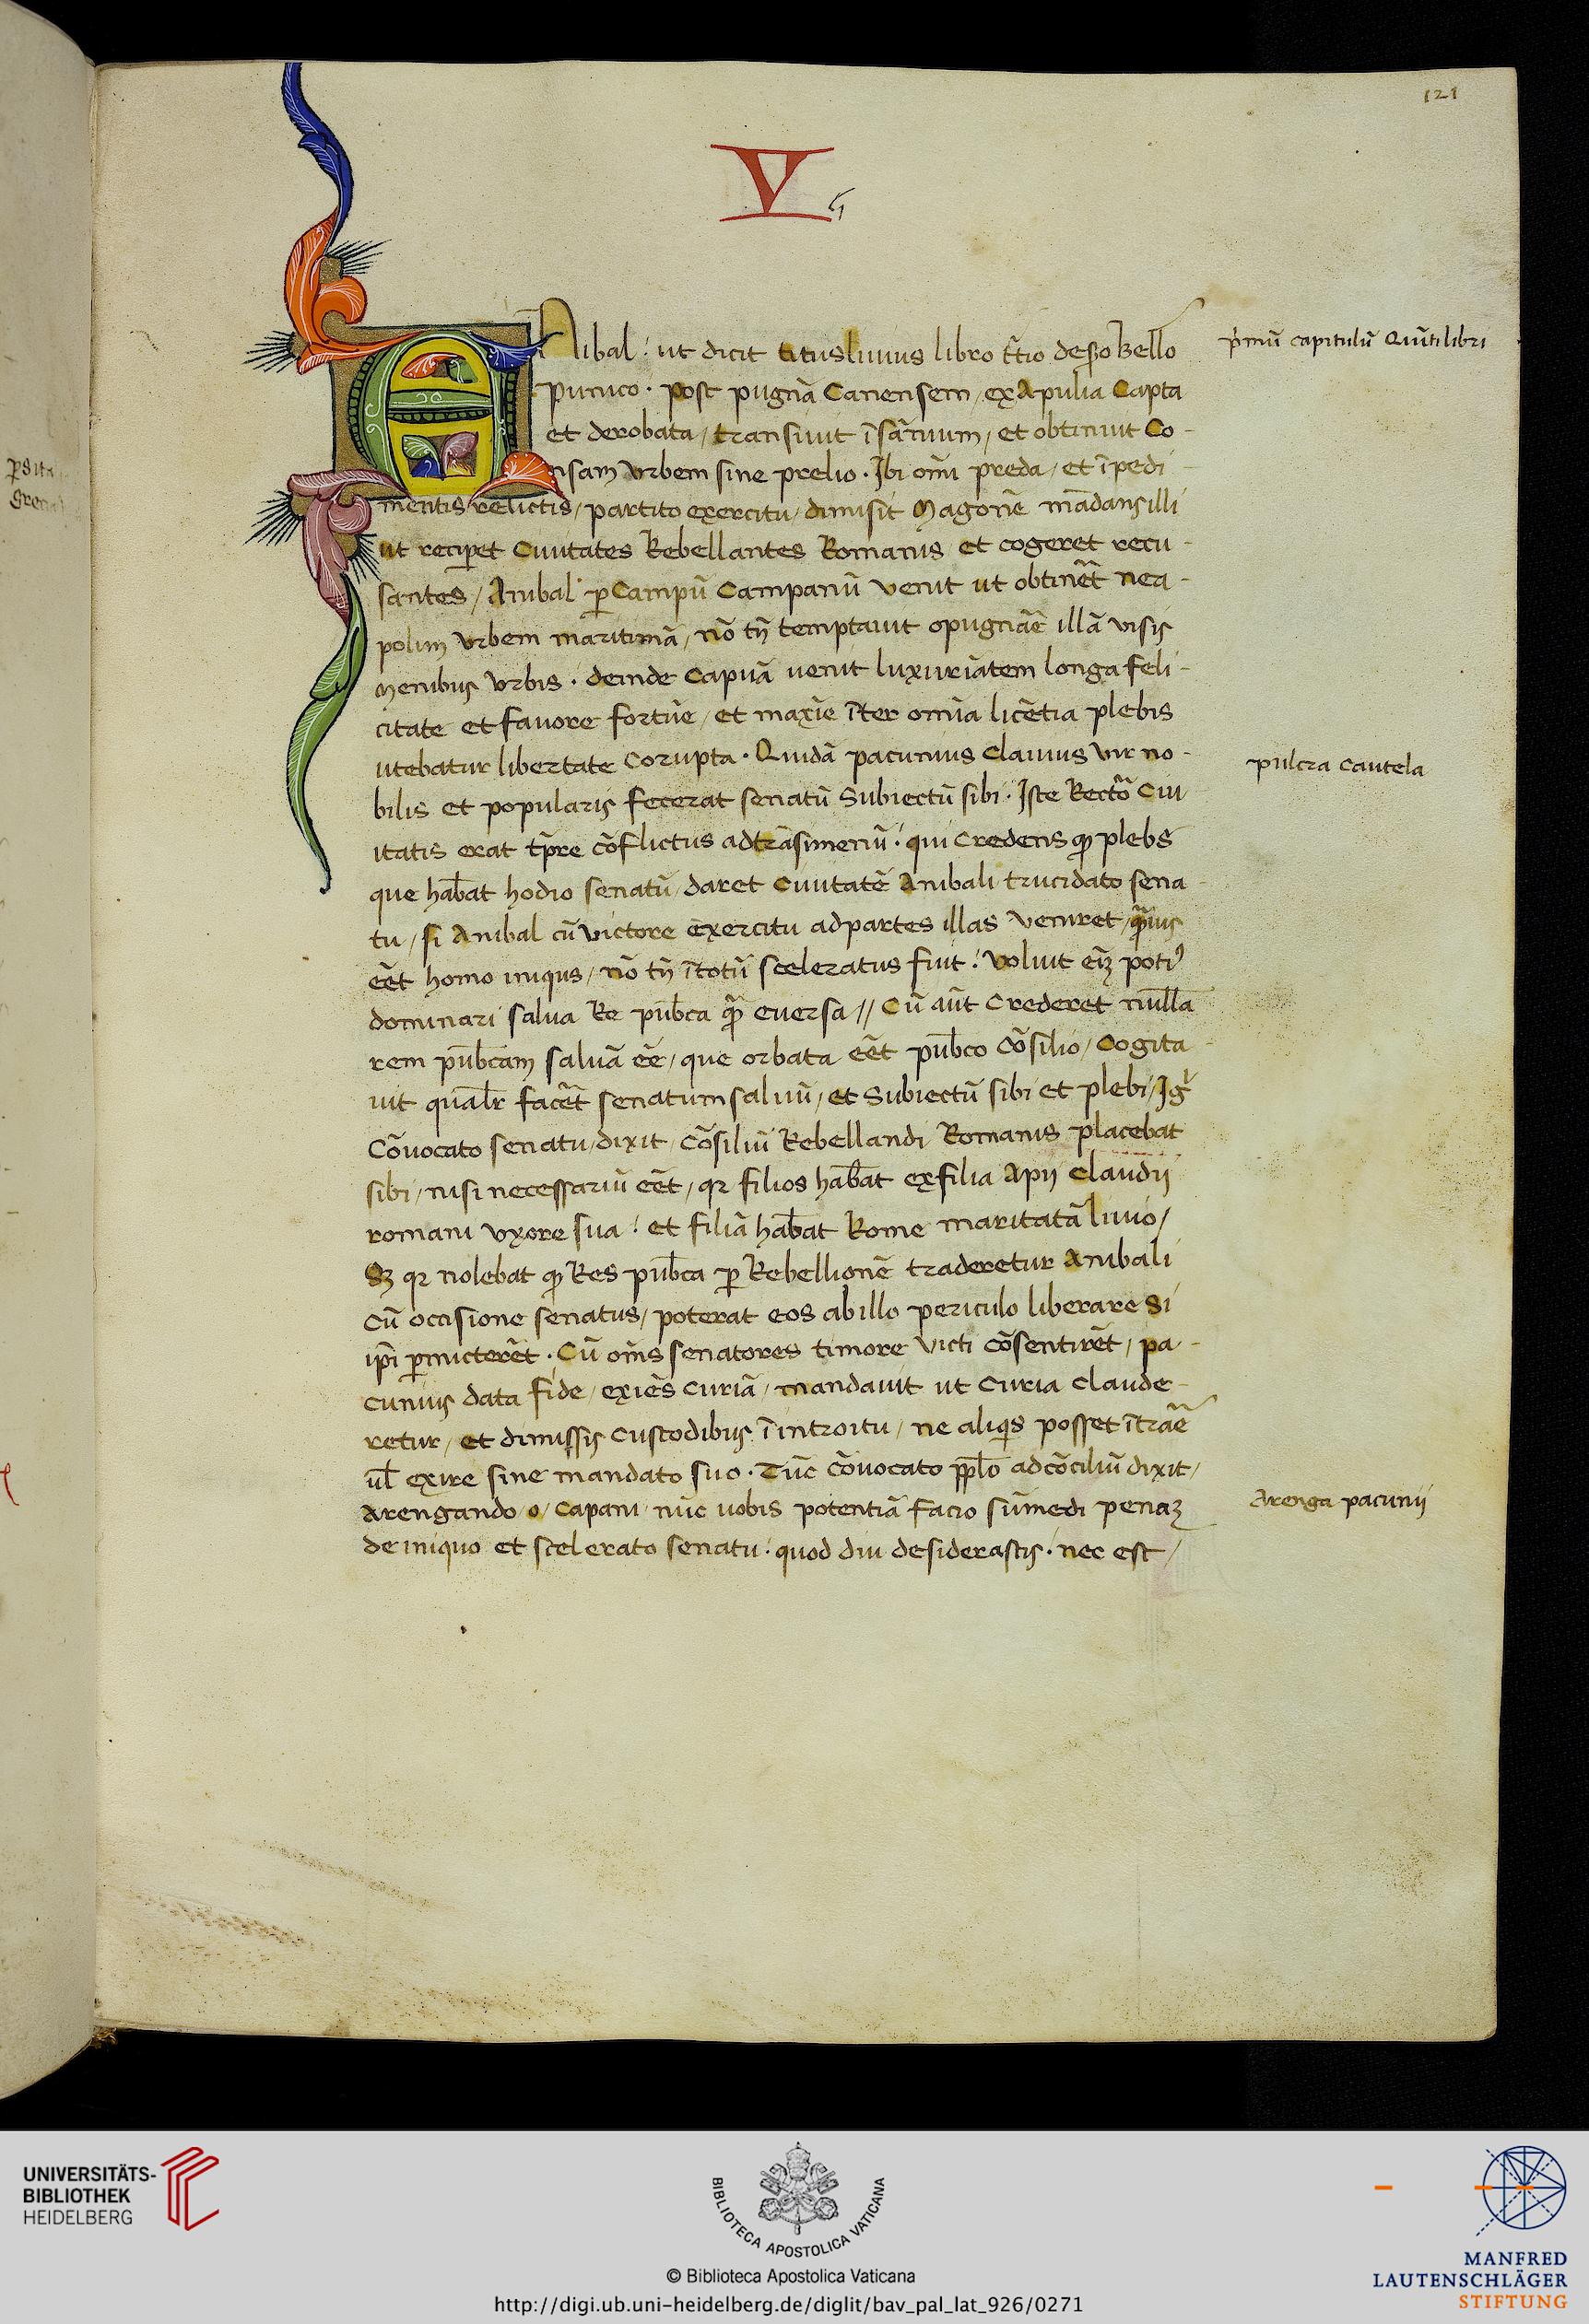 121
V
Anibal: ut dicit titusliuius libro t̄tio desc̄do bello
p̄mū capitulū Quīti libri
punico. post pugnā Canensem, ex Apulia Capta
et derobata, transiuit ī sānium, et obtinuit Co-
nsam vrbem sine prelio. Ibi om̄i preda, et īpedi-
mentis relictis, partito exercitu, dimisit Magonē mādans illi
ut recip̄et Ciuitates Rebellantes Romanis et cogeret recu-
santes, Anibal p̄ Campū Campanū venit ut obtinēt nea-
polim vrbem maritimā, nō tn̄ temptauit opugnāe illā visis
menibus vrbis. deinde Capuā uenit luxuriātem longa feli-
citate et fauore fortūe, et maxīe īter omīa licētia plebis
utebatur libertate Corupta. Quidā pacuuius Clauius vir no-
pulcra Cautela
bilis et popularis fecerat senatū Subiectū sibi. Iste Rector̄ Ciu
itatis erat tp̄re cōflictus ad trāsimenū. qui Credens qp̄ plebs
que hab̄at hodio senatū, daret Ciuitatē Anibali trucidato sena-
tu, si Anibal cū victore exercitu ad partes illas veniret, qm̄uis
eēt homo iniqus, nō tn̄ ī totū sceleratus fuit: voluit eīꝫ poti᾽
dominari salua Re pub̄ca qm̄ euersa // Cū aūt Crederet nullā
rem pub̄cam saluā eē, que orbata eēt pub̄co Cōsilio, Cogita-
uit qualr̄ facēt senatum saluū, et Subiectū sibi et plebi, Iḡ
Cōuocato senatu, dixit, Cōsiliū Rebellandi Romanis placebat
sibi, nisi necessariū eēt, qr filios hab̄at ex filia Apij Claudij
romani vxore sua: et filiā hab̄at Rome maritatā liuio,
Sꝫ qr nolebat qp̄ Res pub̄ca p̄ Rebellionē traderetur Anibali
Cū occisione senatus, poterat eos ab illo periculo liberare Si
ip̄i p̄micterēt. Cū om̄s senatores timore victi cōsentirēt, pa-
cuuius data fide, exiēs Curiā, mandauit ut Curia Claude-
retur, et dimissis Custodibus ī introitu, ne aliq̄s posset ītrāe
ul̄ exire sine mandato suo. Tūc Cōuocato pp̄lo ad cōciliū dixit,
Arengando, o, Capani, nūc uobis potentiā facio sūmedi penaꝫ
Arenga pacuuij
de iniquo et scelerato senatu: quod diu desiderastis. nec est,
UNIVERSITÄTS-
BIBLIOTHEK
HEIDELBERG
BIBLIOTECA APOSTOLICA VATICANA
© Biblioteca Apostolica Vaticana
http://digi.ub.uni-heidelberg.de/diglit/bav_pal_lat_926/0271
MANFRED
LAUTENSCHLÄGER
STIFTUNG